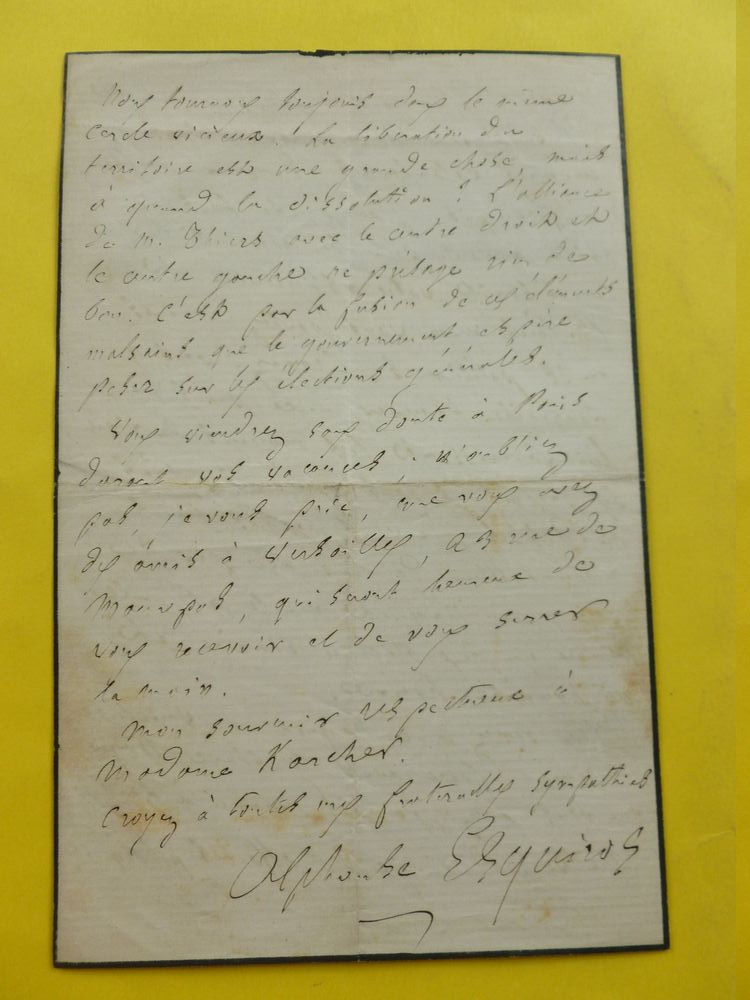 Nous tournons toujours dans le même
cercle vicieux. La libération du
territoire est une grande chose, mais
à quand la dissolution ? L'alliance
de M. Thiers avec le centre droit et
le centre gauche ne présage rien de
bon. C'est par la fusion de ces éléments
malsains que le gouvernement espère
peser sur les élections générales.
Vous viendrez sans doute à Paris
durant vos vacances ; n'oubliez
pas, je vous prie, que vous avez
des amis à Versailles, rue de
Maurepas, qui seront heureux de
vous recevoir et de vous serrer
la main.
Mon souvenir respectueux à
Madame Karcher.
Croyez à toutes mes fraternelles sympathies
Alphonse Esquiros